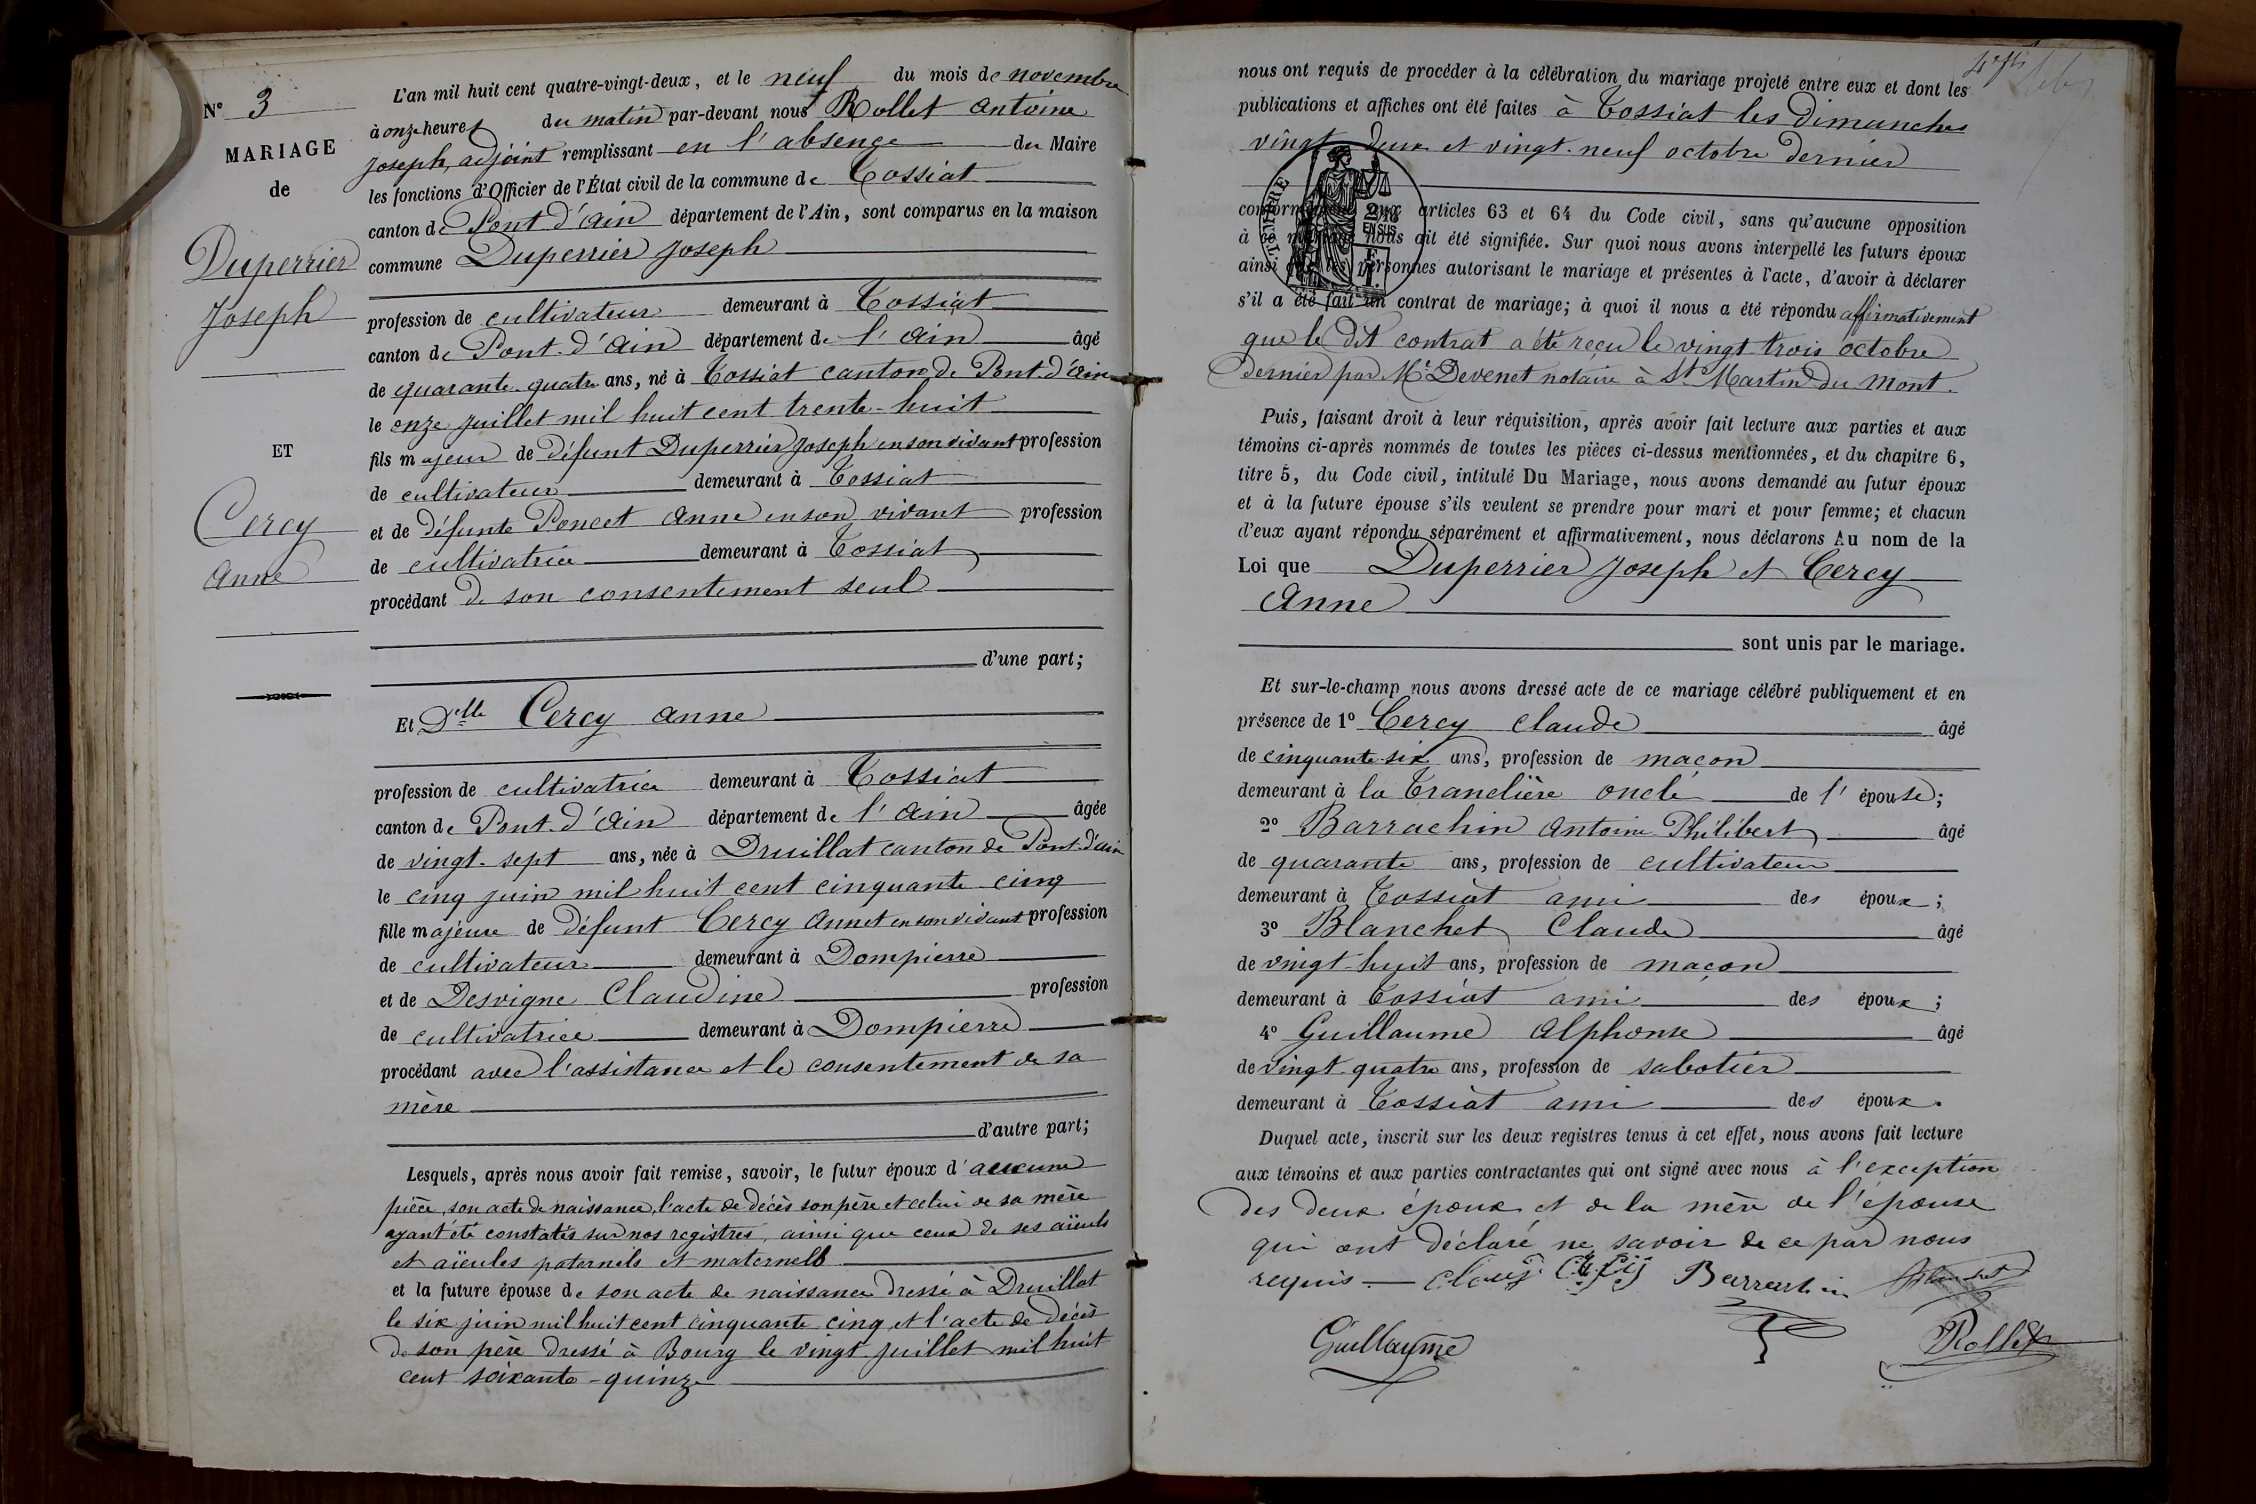 N° 3
MARIAGE
de
Duperrier
Joseph
ET
Cercy
Anne
L'an mil huit cent quatre-vingt-deux, et le neuf du mois de novembre
à onze heures du matin par-devant nous Rollet Antoine
Joseph, adjoint remplissant en l'absence du Maire
les fonctions d'Officier de l'État civil de la commune de Tossiat
canton de Pont d'Ain département de l'Ain, sont comparus en la maison
commune Duperrier Joseph
profession de cultivateur demeurant à Tossiat
canton de Pont-d'Ain département de l'Ain âgé
de quarante-quatre ans, né à Tossiat canton de Pont-d'Ain
le onze juillet mil huit cent trente-huit
fils majeur de défunt Duperrier Joseph en son vivant profession
de cultivateur demeurant à Tossiat
et de défunte Poncet Anne en son vivant profession
de cultivatrice demeurant à Tossiat
procédant de son consentement seul
d'une part;
Et Delle Cercy Anne
profession de cultivatrice demeurant à Tossiat
canton de Pont-d'Ain département de l'Ain âgée
de vingt-sept ans, née à Druillat canton de Pont-d'Ain
le cinq juin mil huit cent cinquante cinq
fille majeure de défunt Cercy Annet en son vivant profession
de cultivateur demeurant à Dompierre
et de Desvigne Claudine profession
de cultivatrice demeurant à Dompierre
procédant avec l'assistance et le consentement de sa
mère
d'autre part;
Lesquels, après nous avoir fait remise, savoir, le futur époux d'aucune
pièce, son acte de naissance, l'acte de décès son père et celui de sa mère
ayant été constatés sur nos registres, ainsi que ceux de ses aïeuls
et aïeules paternels et maternels
et la future épouse de son acte de naissance dressé à Druillat
le six juin mil huit cent cinquante cinq et l'acte de décès
de son père dressé à Bourg le vingt juillet mil huit
cent soixante-quinze
nous ont requis de procéder à la célébration du mariage projeté entre eux et dont les
publications et affiches ont été faites à Tossiat les Dimanches
vingt deux et vingt-neuf octobre dernier
conformément aux articles 63 et 64 du Code civil, sans qu'aucune opposition
à ce mariage nous ait été signifiée. Sur quoi nous avons interpellé les futurs époux
ainsi que les personnes autorisant le mariage et présentes à l'acte, d'avoir à déclarer
s'il a été fait un contrat de mariage; à quoi il nous a été répondu affirmativement
que le dit contrat a été reçu le vingt trois octobre
dernier par Me Devenet notaire à St Martin du Mont.
Puis, faisant droit à leur réquisition, après avoir fait lecture aux parties et aux
témoins ci-après nommés de toutes les pièces ci-dessus mentionnées, et du chapitre 6,
titre 5, du Code civil, intitulé Du Mariage, nous avons demandé au futur époux
et à la future épouse s'ils veulent se prendre pour mari et pour femme; et chacun
d'eux ayant répondu séparément et affirmativement, nous déclarons Au nom de la
Loi que Duperrier Joseph et Cercy
Anne
sont unis par le mariage.
Et sur-le-champ nous avons dressé acte de ce mariage célébré publiquement et en
présence de 1° Cercy Claude âgé
de cinquante-six ans, profession de maçon
demeurant à la Tranclière oncle de l'épouse;
2° Barrachin Antoine Philibert âgé
de quarante ans, profession de cultivateur
demeurant à Tossiat ami des époux;
3° Blanchet Claude âgé
de vingt-huit ans, profession de maçon
demeurant à Tossiat ami des époux;
4° Guillaume Alphonse âgé
de vingt-quatre ans, profession de sabotier
demeurant à Tossiat ami des époux.
Duquel acte, inscrit sur les deux registres tenus à cet effet, nous avons fait lecture
aux témoins et aux parties contractantes qui ont signé avec nous à l'exception
des deux époux et de la mère de l'épouse
qui ont déclaré ne savoir de ce par nous
requis. Barrachin Blanchet
Guillaume Rollet